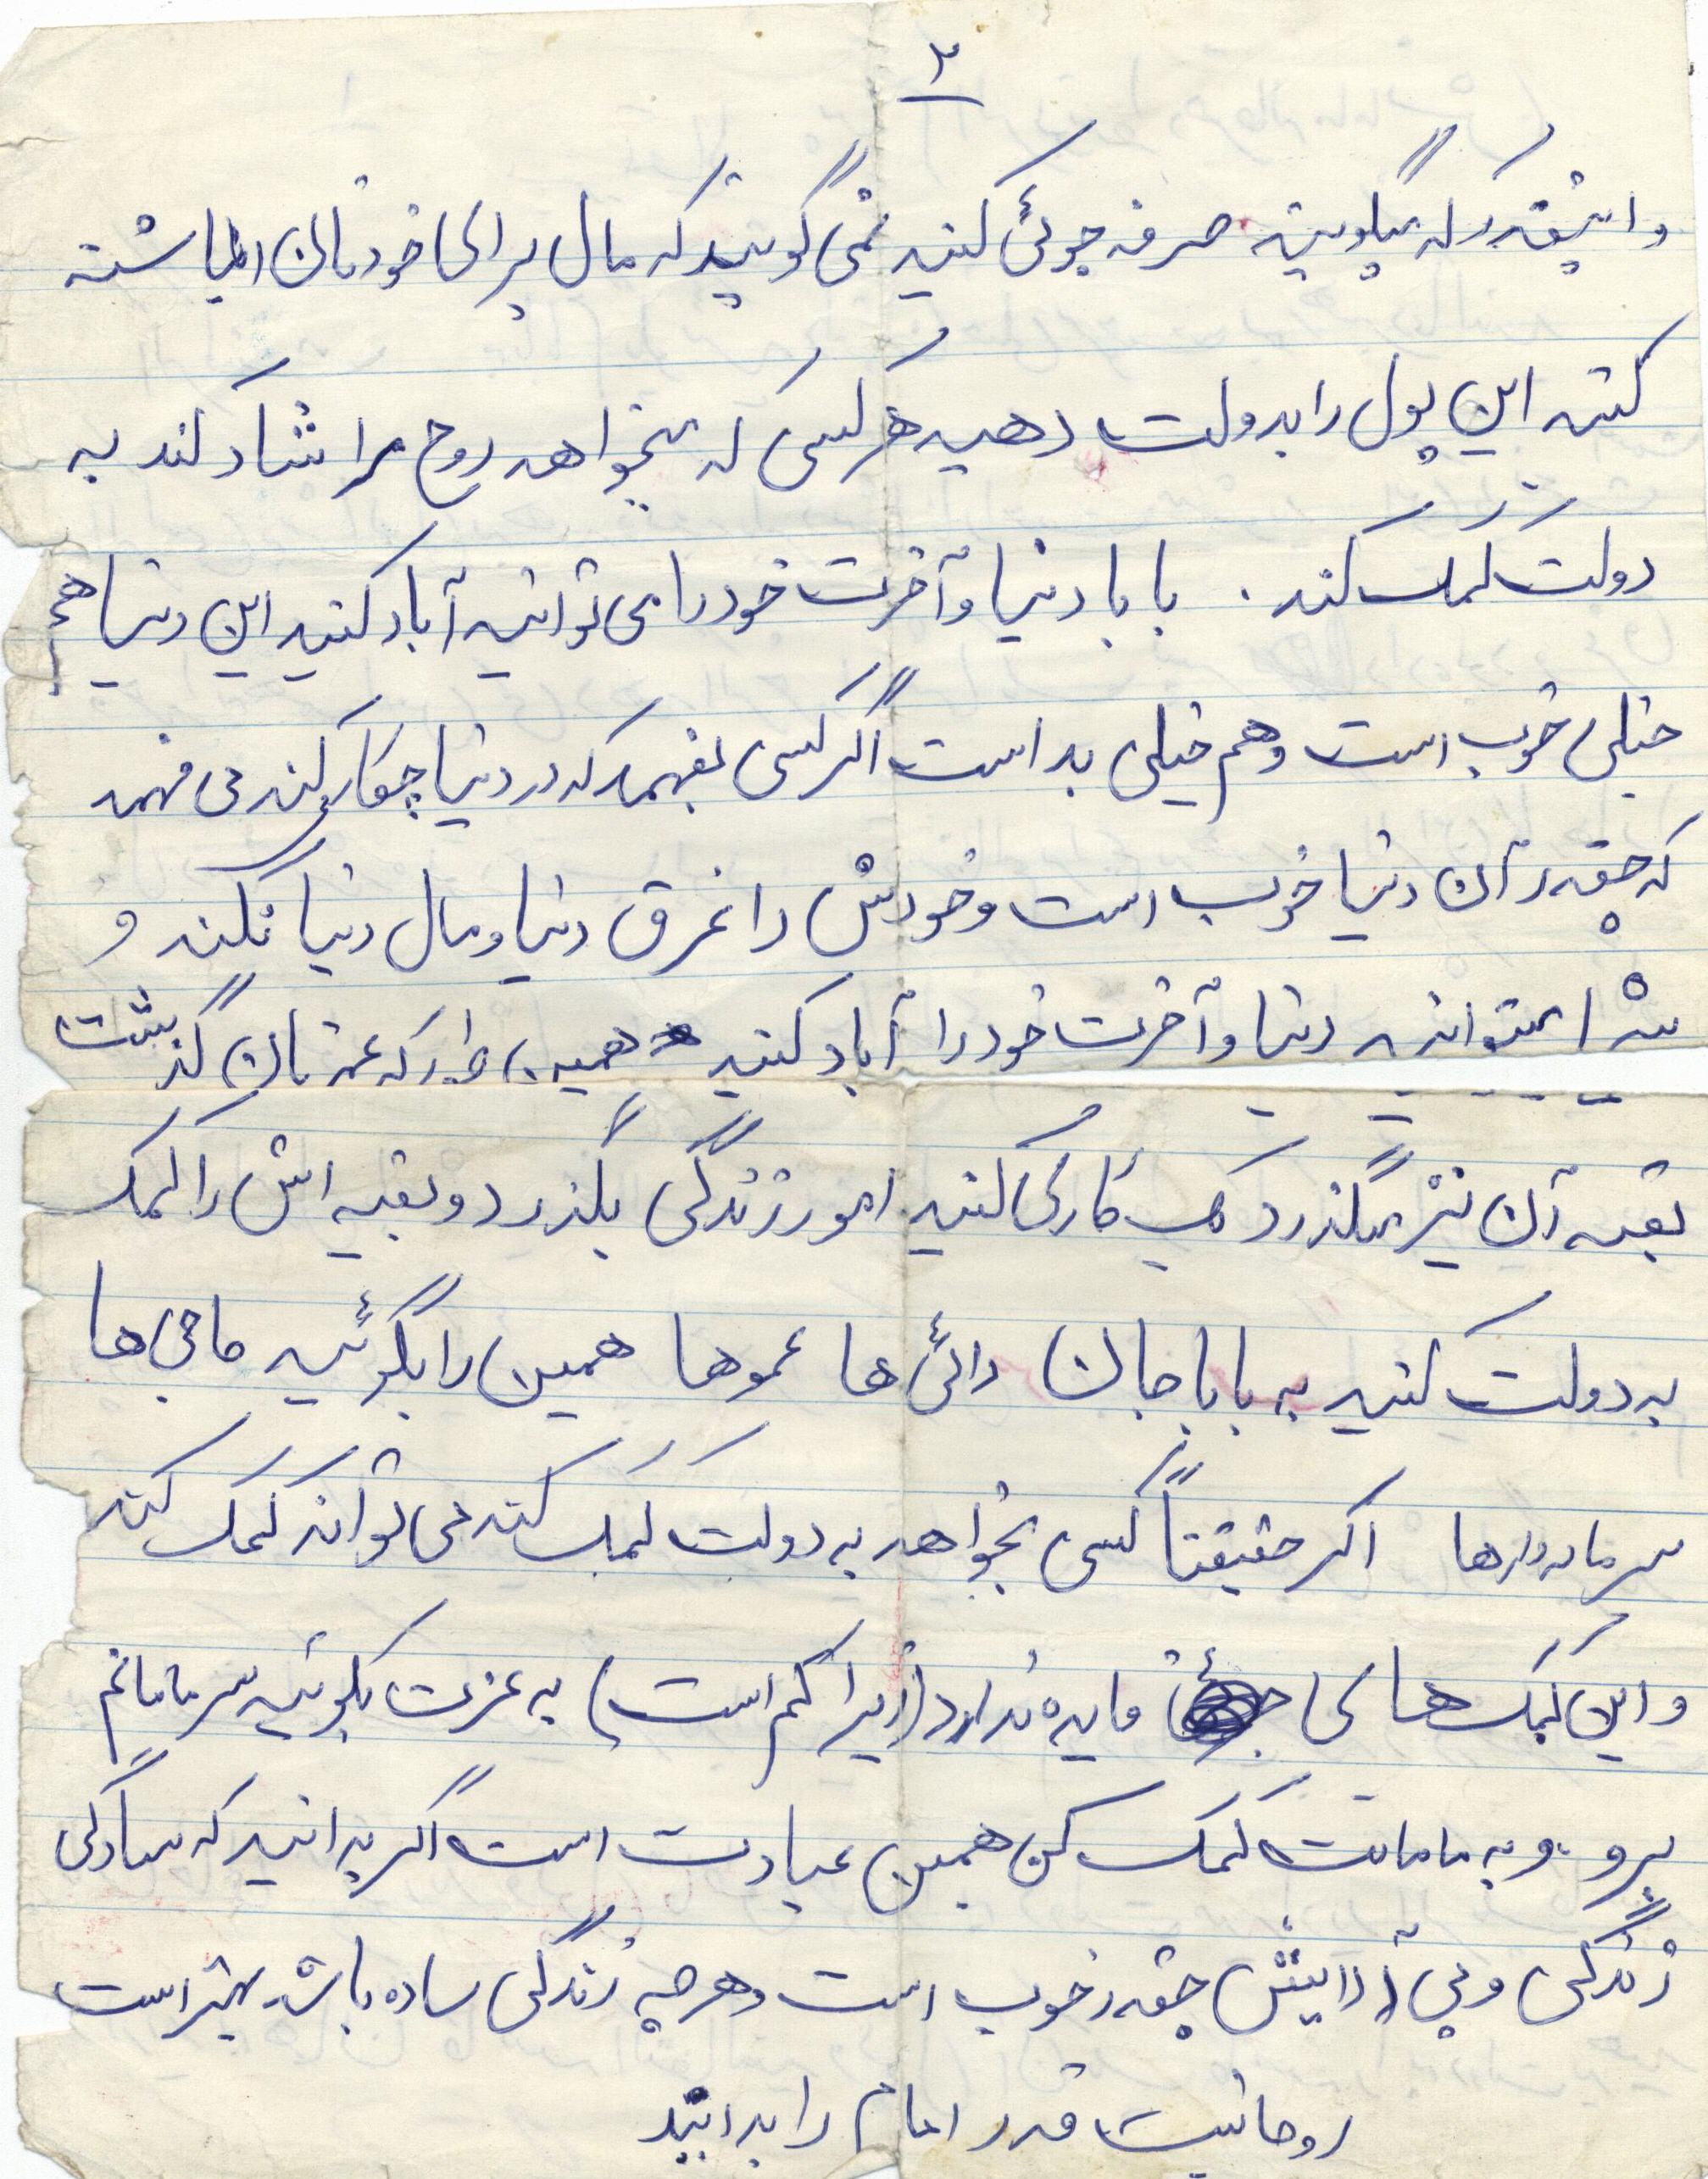 ۲
واینقدر که میگویند صرفه جوئی کنید نمی گویند که مال برای خودتان انباشته
کنید این پول را بدولت دهید هرکسی که میخواهد روح مرا شاد کند به
دولت کمک کند. بابا دنیا وآخرت خود را می توانید آباد کنید این دنیا هم
خیلی خوب است وهم خیلی بد است اگر کسی بفهمد که در دنیا چکار کند می فهمد
که چقدر آن دنیا خوب است وخودش را غرق دنیا ومال دنیا نکند و
شما میتوانید دنیا وآخرت خود را آباد کنید همین طور که عمرتان گذشت
بقیه آن نیز میگذرد یک کاری کنید امور زندگی بگذرد و بقیه اش را کمک
به دولت کنید به باباجان دائی ها عموها همین را بگوئید حاجی ها
سرمایه دارها اگر حقیقتاً کسی بخواهد به دولت کمک کند می تواند کمک کند
و این کمک های فایده ندارد (زیرا کم است) به عزت بگوئید سر مامانم
برو و به مامانت کمک کن همین عبادت است اگر بدانید که سادگی
زندگی و بی آرایش چقدر خوب است و هرچه زندگی ساده باشد بهتر است
روحانیت قدر امام را بدانید